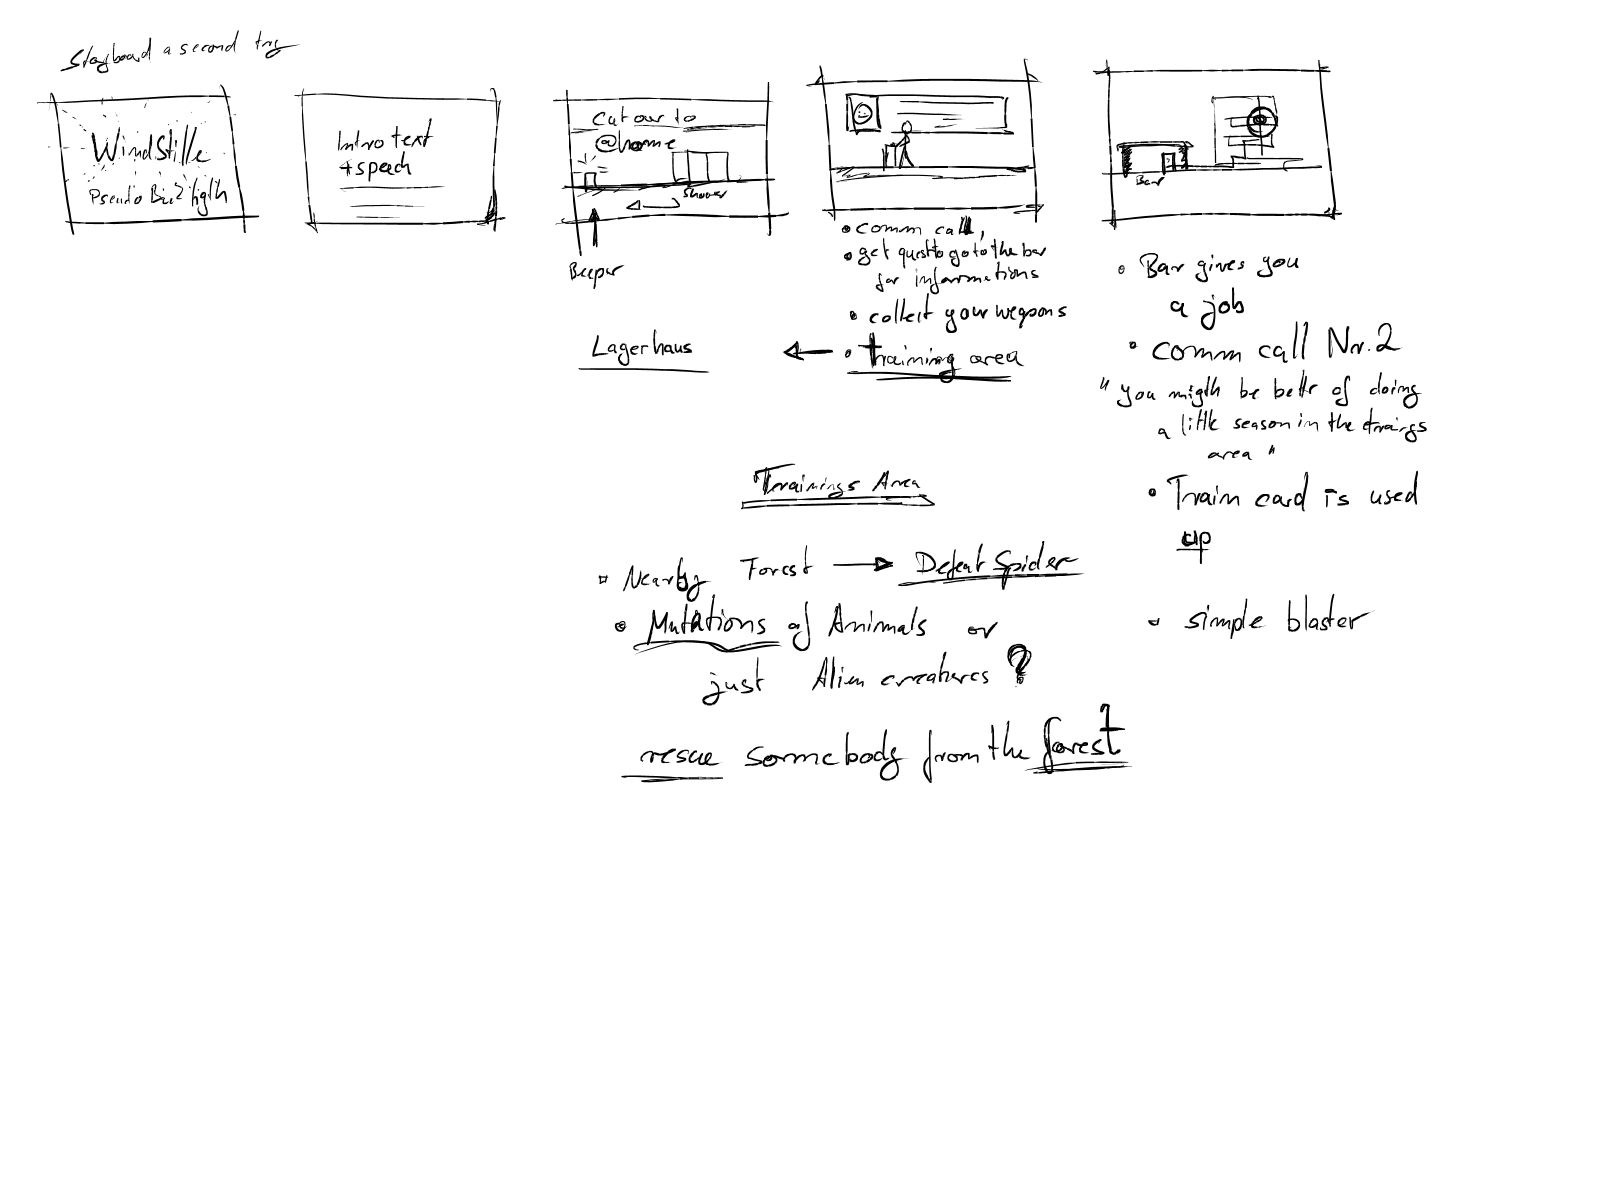 Storyboard a second try
WindStille
Intro text
+ speach
Cut our to
@home
Shower
Beeper
• comm call,
• get quest to go to the bar
for informations
• collect your weapons
• training area
Lagerhaus
Bar
• Bar gives you
a job
• comm call Nr. 2
"you migth be bettr of doing
a little season in the trainigs
area"
• Train card is used
up
• simple blaster
Trainings Area
• Nearby Forest → Defeat Spider
• Mutations of Animals or
just Alien creatures?
rescue somebody from the forest